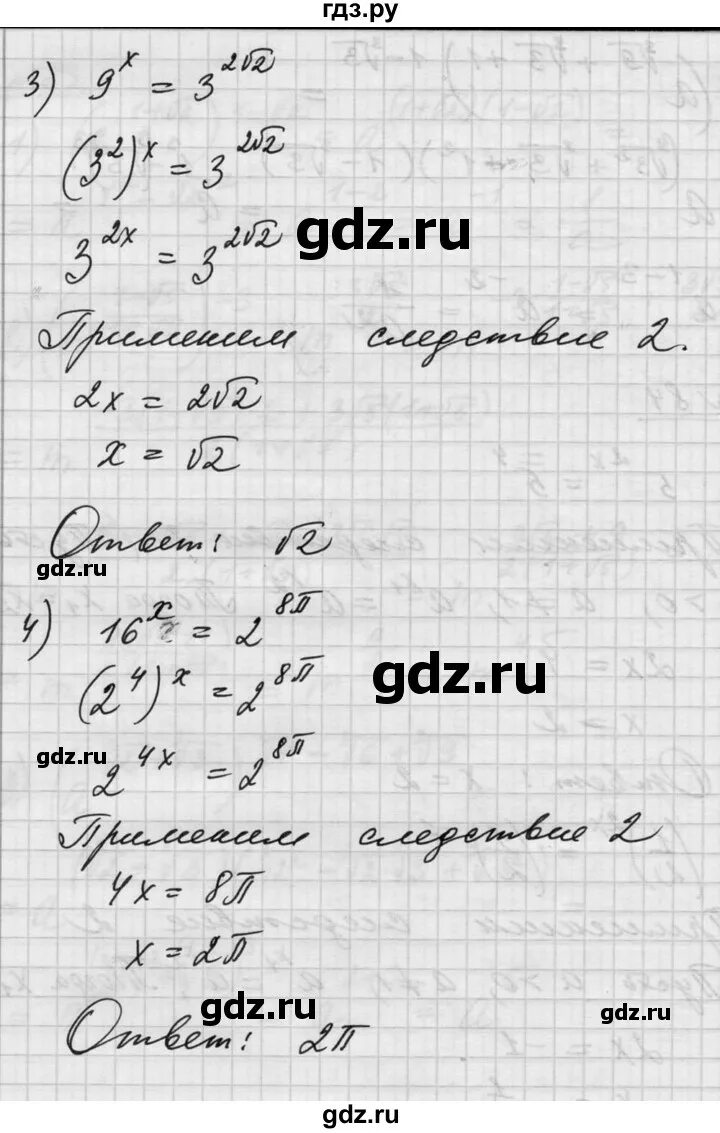 гдз.ру
3) 9^x = 3^{2√2}
(3^2)^x = 3^{2√2}
3^{2x} = 3^{2√2}
gdz.ru
Применим следствие 2.
2x = 2√2
x = √2
Ответ: √2
gdz.ru
4) 16^x = 2^{8π}
(2^4)^x = 2^{8π}
gdz.ru
gdz.ru
2^{4x} = 2^{8π}
Применим следствие 2
4x = 8π
x = 2π
gdz.ru
gdz.ru
Ответ: 2π
gdz.ru